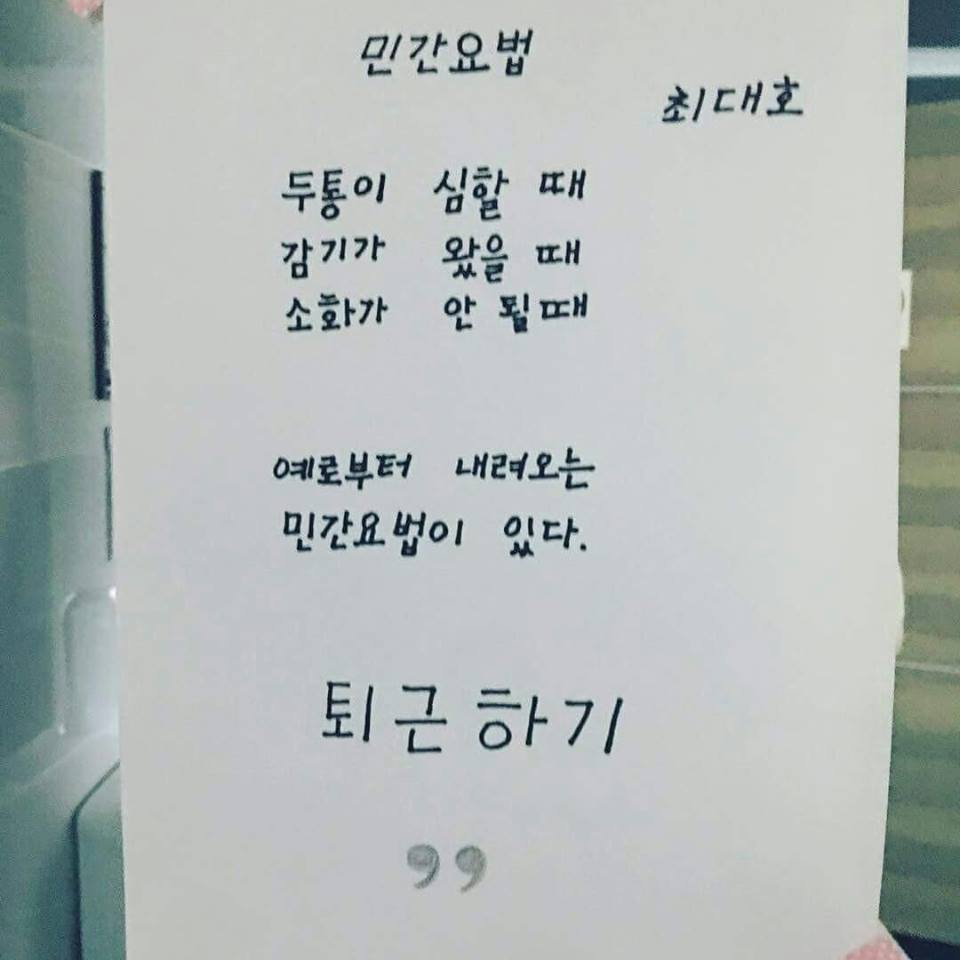 민간요법
최대호
두통이 심할 때
감기가 왔을 때
소화가 안 될때
예로부터 내려오는
민간요법이 있다.
퇴근하기
”